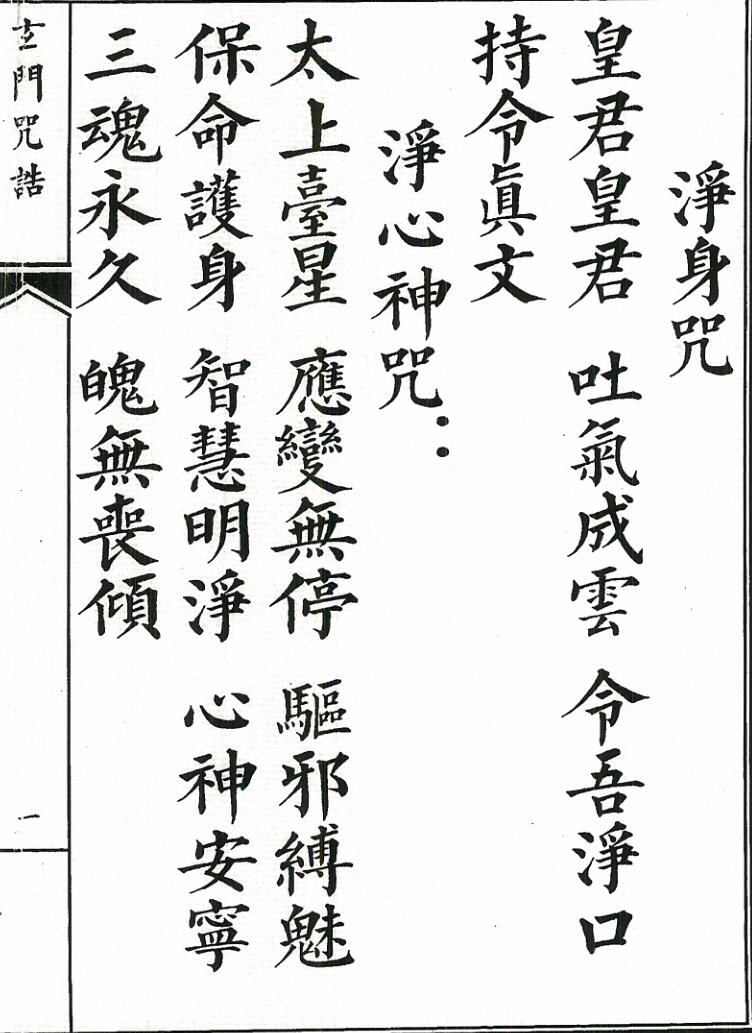 淨身咒
皇君皇君 吐氣成雲 令吾淨口
持令眞文
淨心神咒：
太上臺星 應變無停 驅邪縛魅
保命護身 智慧明淨 心神安寧
三魂永久 魄無喪傾
玄門咒誥
一